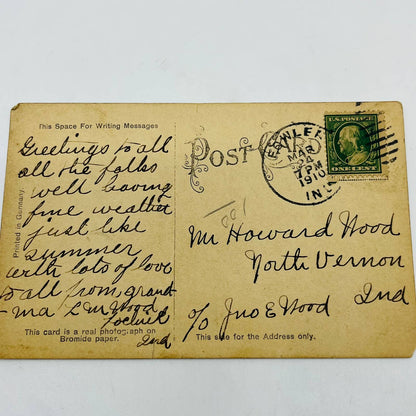 This Space For Writing Messages
Greetings to all
all the folks
well having
fine weather
just like
summer
with lots of love
to all from grand
-ma L M Wood
Locust
Ind
Printed in Germany
This card is a real photograph on
Bromide paper.
POST
FOWLER
MAR
24
7 PM
1910
IND.
U.S. POSTAGE
ONE CENT
100
Mr Howard Wood
North Vernon
Ind
c/o Jno E Wood
This side for the Address only.